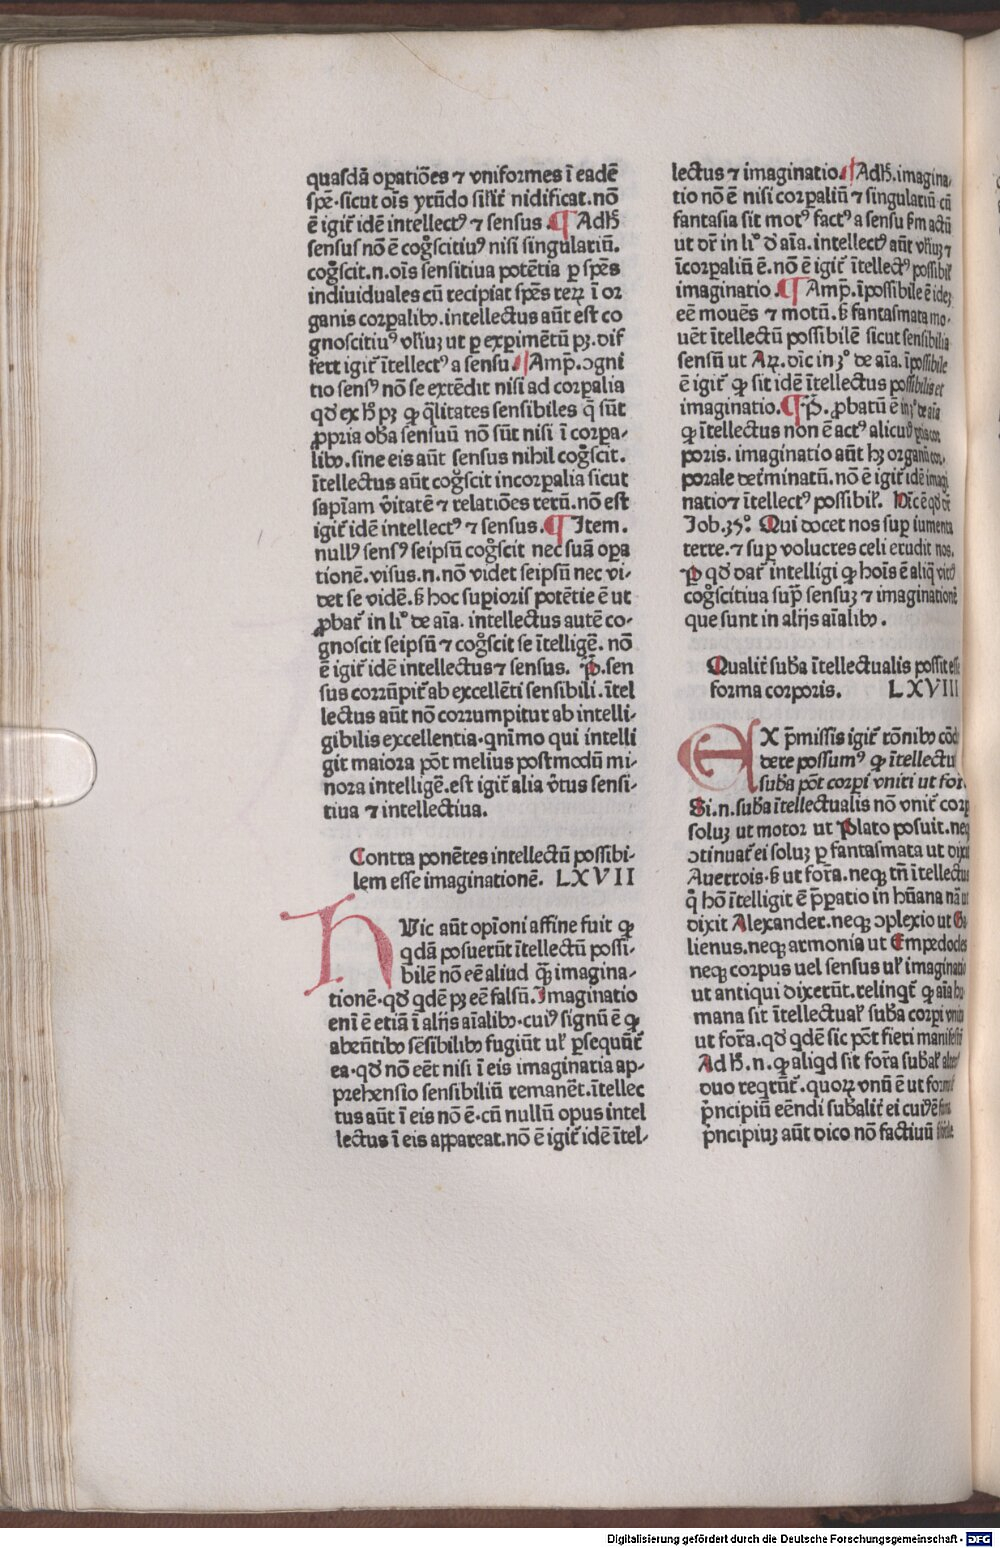 quasdā oꝑatiōes ⁊ vniformes ī eadē
spē·sicut oīs yrūdo sil'r̄ nidificat.nō
ē igit̄ idē intellectꝰ ⁊ sensus.¶ Adh̄
sensus nō ē cogͦscitiuꝰ nisi singulariū.
cogͦscit.n.oīs sensitiua potētia ꝑ spēs
indiuiduales cū recipiat spēs reꝝ ī or
ganis corꝑalibꝰ.intellectus aūt est co
gnoscitiuꝰ vl'iuꝫ ut ꝑ exꝑimētū pꝫ.dif
fert igit̄ ītellectꝰ a sensu.¶Amp̄.ↄgni
tio sensꝰ nō se extēdit nisi ad corꝑalia
qđ ex h̄ pꝫ ꝙ q̄litates sensibiles q̄ sūt
ꝓpria ob̄a sensuū nō sūt nisi ī corꝑa-
libꝰ.sine eis aūt sensus nihil cogͦscit.
ītellectus aūt cogͦscit incorꝑalia sicut
sapīam v̄itatē ⁊ relatiōes rerū.nō est
igit̄ idē intellectꝰ ⁊ sensus.¶ Item.
nullꝰ sensꝰ seipsū cogͦscit nec suā oꝑa
tionē.visus.n.nō videt seipsū nec vi-
det se vidē.ß hoc suꝑioris potētie ē ut
ꝓbat̄ in liͦ de aīa. intellectus autē co-
gnoscit seipsū ⁊ cogͦscit se ītelligē. nō
ē igit̄ idē intellectus ⁊ sensus. P̄.sen
sus corrūpit̄ ab excellēti sensibili.ītel
lectus aūt nō corrumpitur ab intelli-
gibilis excellentia·qnīmo qui intelli
git maiora pōt melius postmodū mi-
nora intelligē.est igit̄ alia v̄tus sensi-
tiua ⁊ intellectiua.
Contra ponētes intellectū possibi-
lem esse imaginationē. LXVII
HVic aūt opīoni affine fuit ꝙ
qdā posuerūt ītellectū possi-
bilē nō eē aliud q̄ꝫ imagina-
tionē·qđ qdē pꝫ eē falsū.Imaginatio
enī ē etiā ī alijs aīalibꝰ·cuiꝰ signū ē ꝙ
abeūtibꝰ sēsibilibꝰ fugiūt ul' ꝑsequūt̄
ea·qđ nō eēt nisi ī eis imaginaria ap-
prehensio sensibiliū remanēt.ītellec
tus aūt ī eis nō ē·cū nullū opus intel
lectus ī eis appareat.nō ē igit̄ idē ītel-
lectus ⁊ imaginatio.¶Adh̄.imagina-
tio nō ē nisi corꝑaliū ⁊ singulariū cū
fantasia sit motꝰ factꝰ a sensu ßm actū
ut dr̄ in liͦ đ aīa.intellectꝰ aūt vl'iuꝫ ⁊
īcorꝑaliū ē.nō ē igit̄ ītellectꝰ possibil'
imaginatio.¶ Amp̄.īpossibile ē ideꝫ
eē mouēs ⁊ motū.ß fantasmata mo-
uēt ītellectū possibilē sicut sensibilia
sensū ut Aꝝ.dīc in 3ͦ de aīa.īpossibile
ē igit̄ ꝙ sit idē ītellectus possibilis et
imaginatio.¶P̄. ꝓbatū ē in 3ͦ de aīa
ꝙ ītellectus non ē actꝰ alicuiꝰ ꝑtis cor
poris. imaginatio aūt hꝫ organū cor-
porale det̄minatū.nō ē igit̄ idē imagi
natio ⁊ ītellectꝰ possibil'. Hīc ē qđ dr̄
Job.35ͦ. Qui docet nos suꝑ iumenta
terre.⁊ suꝑ volucres celi erudit nos.
P̄ qđ dat̄ intelligi ꝙ hoīs ē aliq̄ virtꝰ
cogͦscitiua sup̄ sensuꝫ ⁊ imaginationē
que sunt in alijs aīalibꝰ.
Qualit̄ sub̄a ītellectualis possit esse
forma corporis. LXVIII
EX p̄missis igit̄ rōnibꝰ cōclu
dere possumꝰ ꝙ ītellectu
sub̄a pōt corpi vniri ut for
Si.n.sub̄a ītellectualis nō vnit̄ corp
soluꝫ ut motor ut Plato posuit.neqꝫ
ↄtinuat̄ ei soluꝫ ꝑ fantasmata ut dixit
Auerrois·ß ut forā.neqꝫ tn̄ ītellectus
q̄ hō ītelligit ē p̄paratio in hūana nā ut
dixit Alexander.neqꝫ ↄplexio ut Ga
lienus.neqꝫ armonia ut Empedocles
neqꝫ corpus uel sensus ul' imaginatio
ut antiqui dixerūt.relinqt̄ ꝙ aīa hu
mana sit ītellectual' sub̄a corpi vnita
ut forā.qđ qdē sic pōt fieri manifestū
Adh̄.n.ꝙ aliqd sit forā sub̄al' alteriꝰ
duo reqrūt̄.quoꝝ vnū ē ut forma sit
p̄ncipiū eēndi sub̄alit̄ ei cuiꝰ ē forā
p̄ncipiuꝫ aūt dico nō factiuū
Digitalisierung gefördert durch die Deutsche Forschungsgemeinschaft - DFG